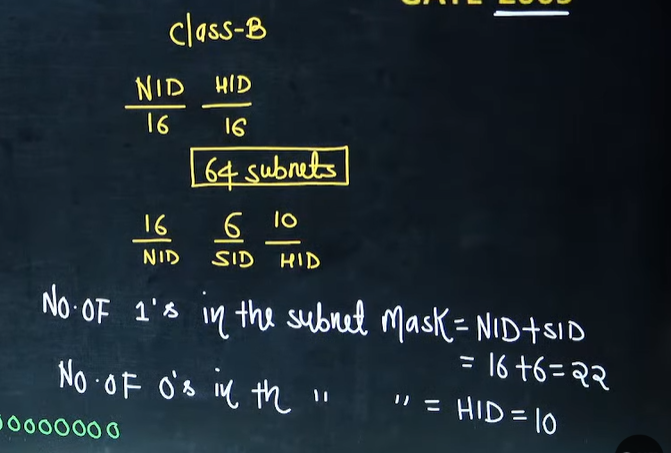 class-B
NID HID
16 16
64 subnets
16 6 10
NID SID HID
No. OF 1's in the subnet Mask = NID+SID
= 16+6=22
No. OF 0's in th " " = HID = 10
0000000